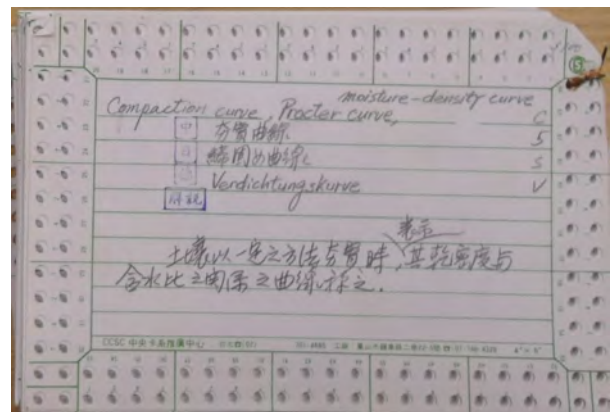 ⑤
moisture-density curve
Compaction curve, Procter curve, C
中 夯實曲線 5
日 締固め曲線 S
Verdichtungskurve V
解說
表示
土壤以一定之方法夯實時,其乾密度与
含水比之関系之曲線称之.
CCSC 中央卡片推廣中心